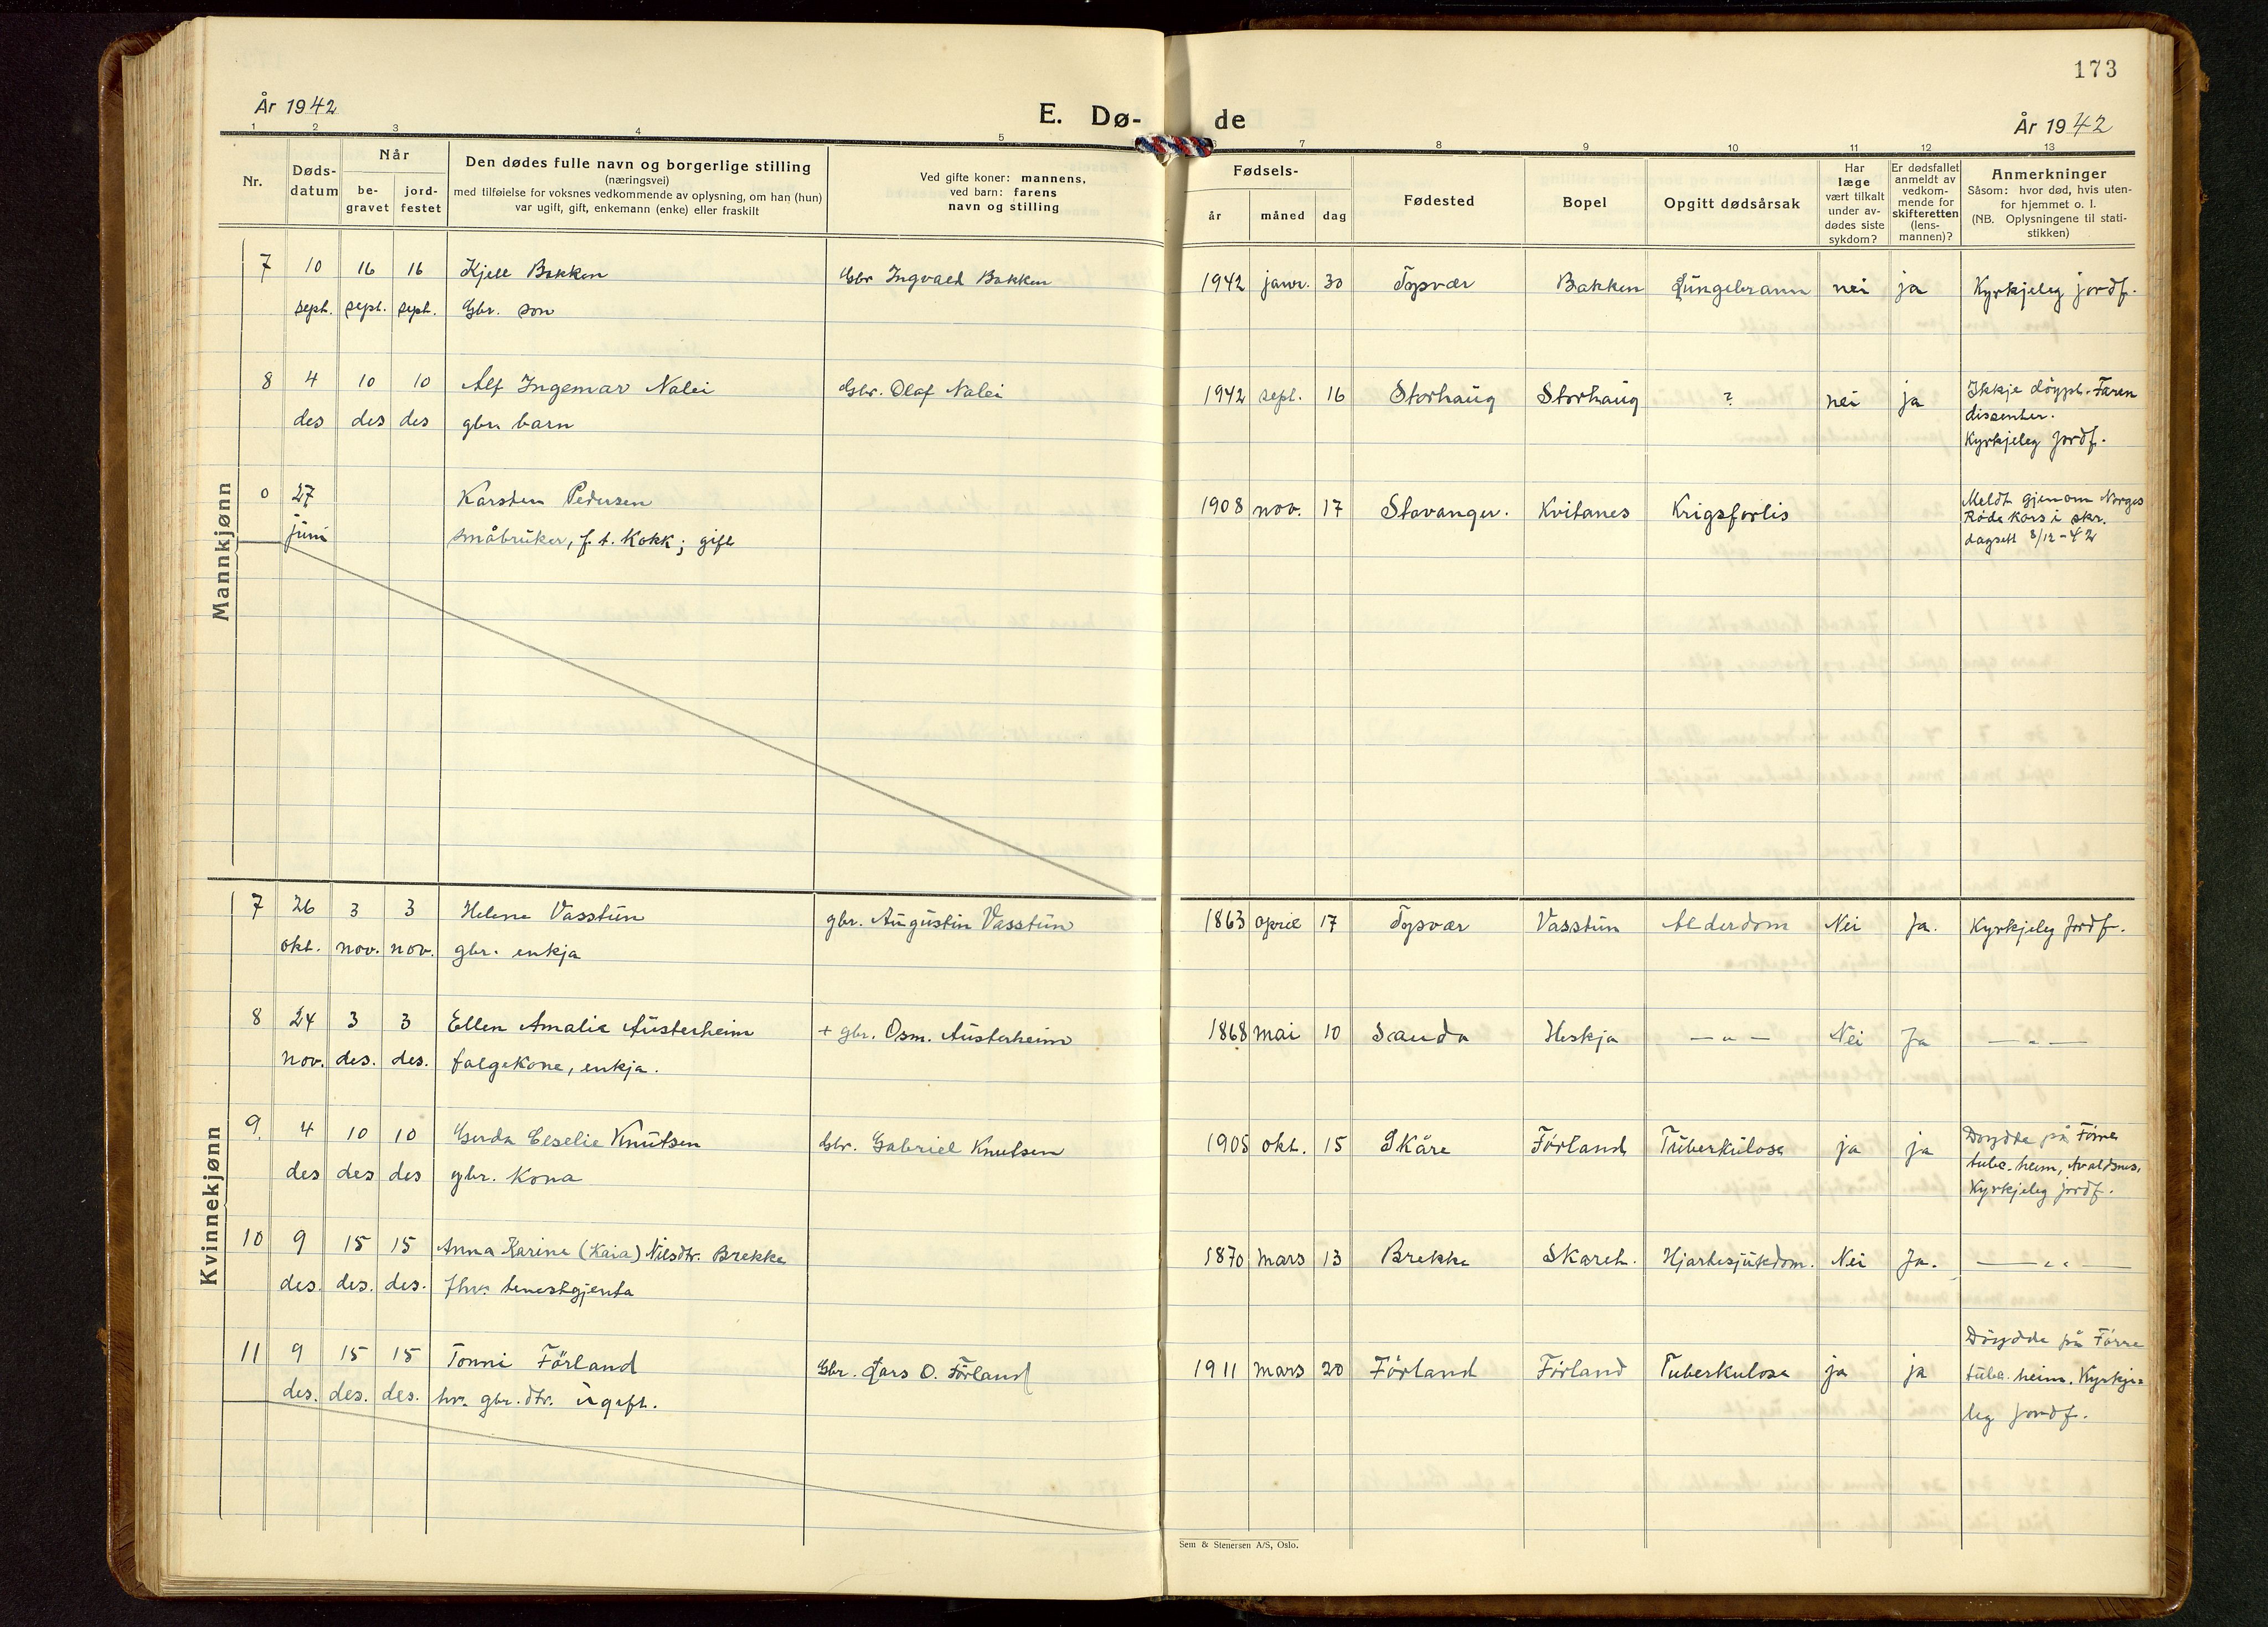 173
År 1942
E. Dø-
de
År 1942
1 2 3 4 5 6 7 8 9 10 11 12 13
Nr.
Døds-
datum
Når
be-
gravet
jord-
festet
Den dødes fulle navn og borgerlige stilling
(næringsvei)
med tilføielse for voksnes vedkommende av oplysning, om han (hun)
var ugift, gift, enkemann (enke) eller fraskilt
Ved gifte koner: mannens,
ved barn: farens
navn og stilling
Fødsels-
år
måned
dag
Fødested
Bopel
Opgitt dødsårsak
Har
læge
vært tilkalt
under av-
dødes siste
sykdom?
Er dødsfallet
anmeldt av
vedkom-
mende for
skifteretten
(lens-
mannen)?
Anmerkninger
Såsom: hvor død, hvis uten-
for hjemmet o. l.
(NB. Oplysningene til stati-
stikken)
Mannkjønn
7 10 16 16 Kjell Bakken Gbr Ingvald Bakken 1942 janr. 30 Tysvær Bakken Lungebrann nei ja Kyrkjeleg jordf.
sept. sept. sept. Gbr. son
8 4 10 10 Alf Ingemar Nalei Gbr. Olaf Nalei 1942 sept. 16 Storhaug Storhaug ? nei ja Ikkje döypt. Faren
des des des gbr. barn dissenter.
Kyrkjeleg jordf.
0 27 Karsten Pedersen 1908 nov. 17 Stavanger. Kvitanes Krigsforlis Meldt gjenom Norges
juni småbruker, f. t. kokk; gift Röde Kors i skr.
dagsett 8/12-42
Kvinnekjønn
7 26 3 3 Helene Vasstun gbr. Augustin Vasstun 1863 april 17 Tysvær Vasstun Alderdom Nei Ja. Kyrkjeleg jordf.
okt. nov. nov. gbr. enkja
8 24 3 3 Ellen Amalie Austerheim + gbr. Osm. Austerheim 1868 mai 10 Sauda Heskja — „ — Nei Ja — „ —
nov. des. des. folgekone, enkja.
9. 4 10 10 Gerda Eleselie Knutsen Gbr. Gabriel Knutsen 1905 okt. 15 Skåre Förland Tuberkulose ja ja Döydde på Förre
des des des gbr. kona tube. heim, Avaldsnes.
Kyrkjeleg jordf.
10 9 15 15 Anna Karine (Kaia) Nilsdtr. Brekke 1870 mars 13 Brekke Skareh. Hjartesjukdom. Nei Ja. — „ —
des. des. des. fhv. tenestgjenta
11 9 15 15 Tonni Förland Gbr. Lars O. Förland 1911 mars 20 Förland Förland Tuberkulose ja ja Döydde på Förre
des. des. des. hv. gbr. dtr. ugift. tube. heim. Kyrkje-
leg jordf.
Sem & Stenersen A/S, Oslo.